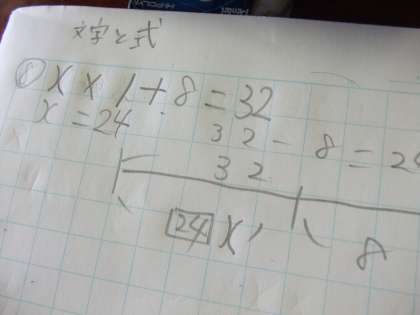 文字と式
⑧ X × 1 + 8 = 32
X = 24
32 - 8 = 24
32
24 X
8